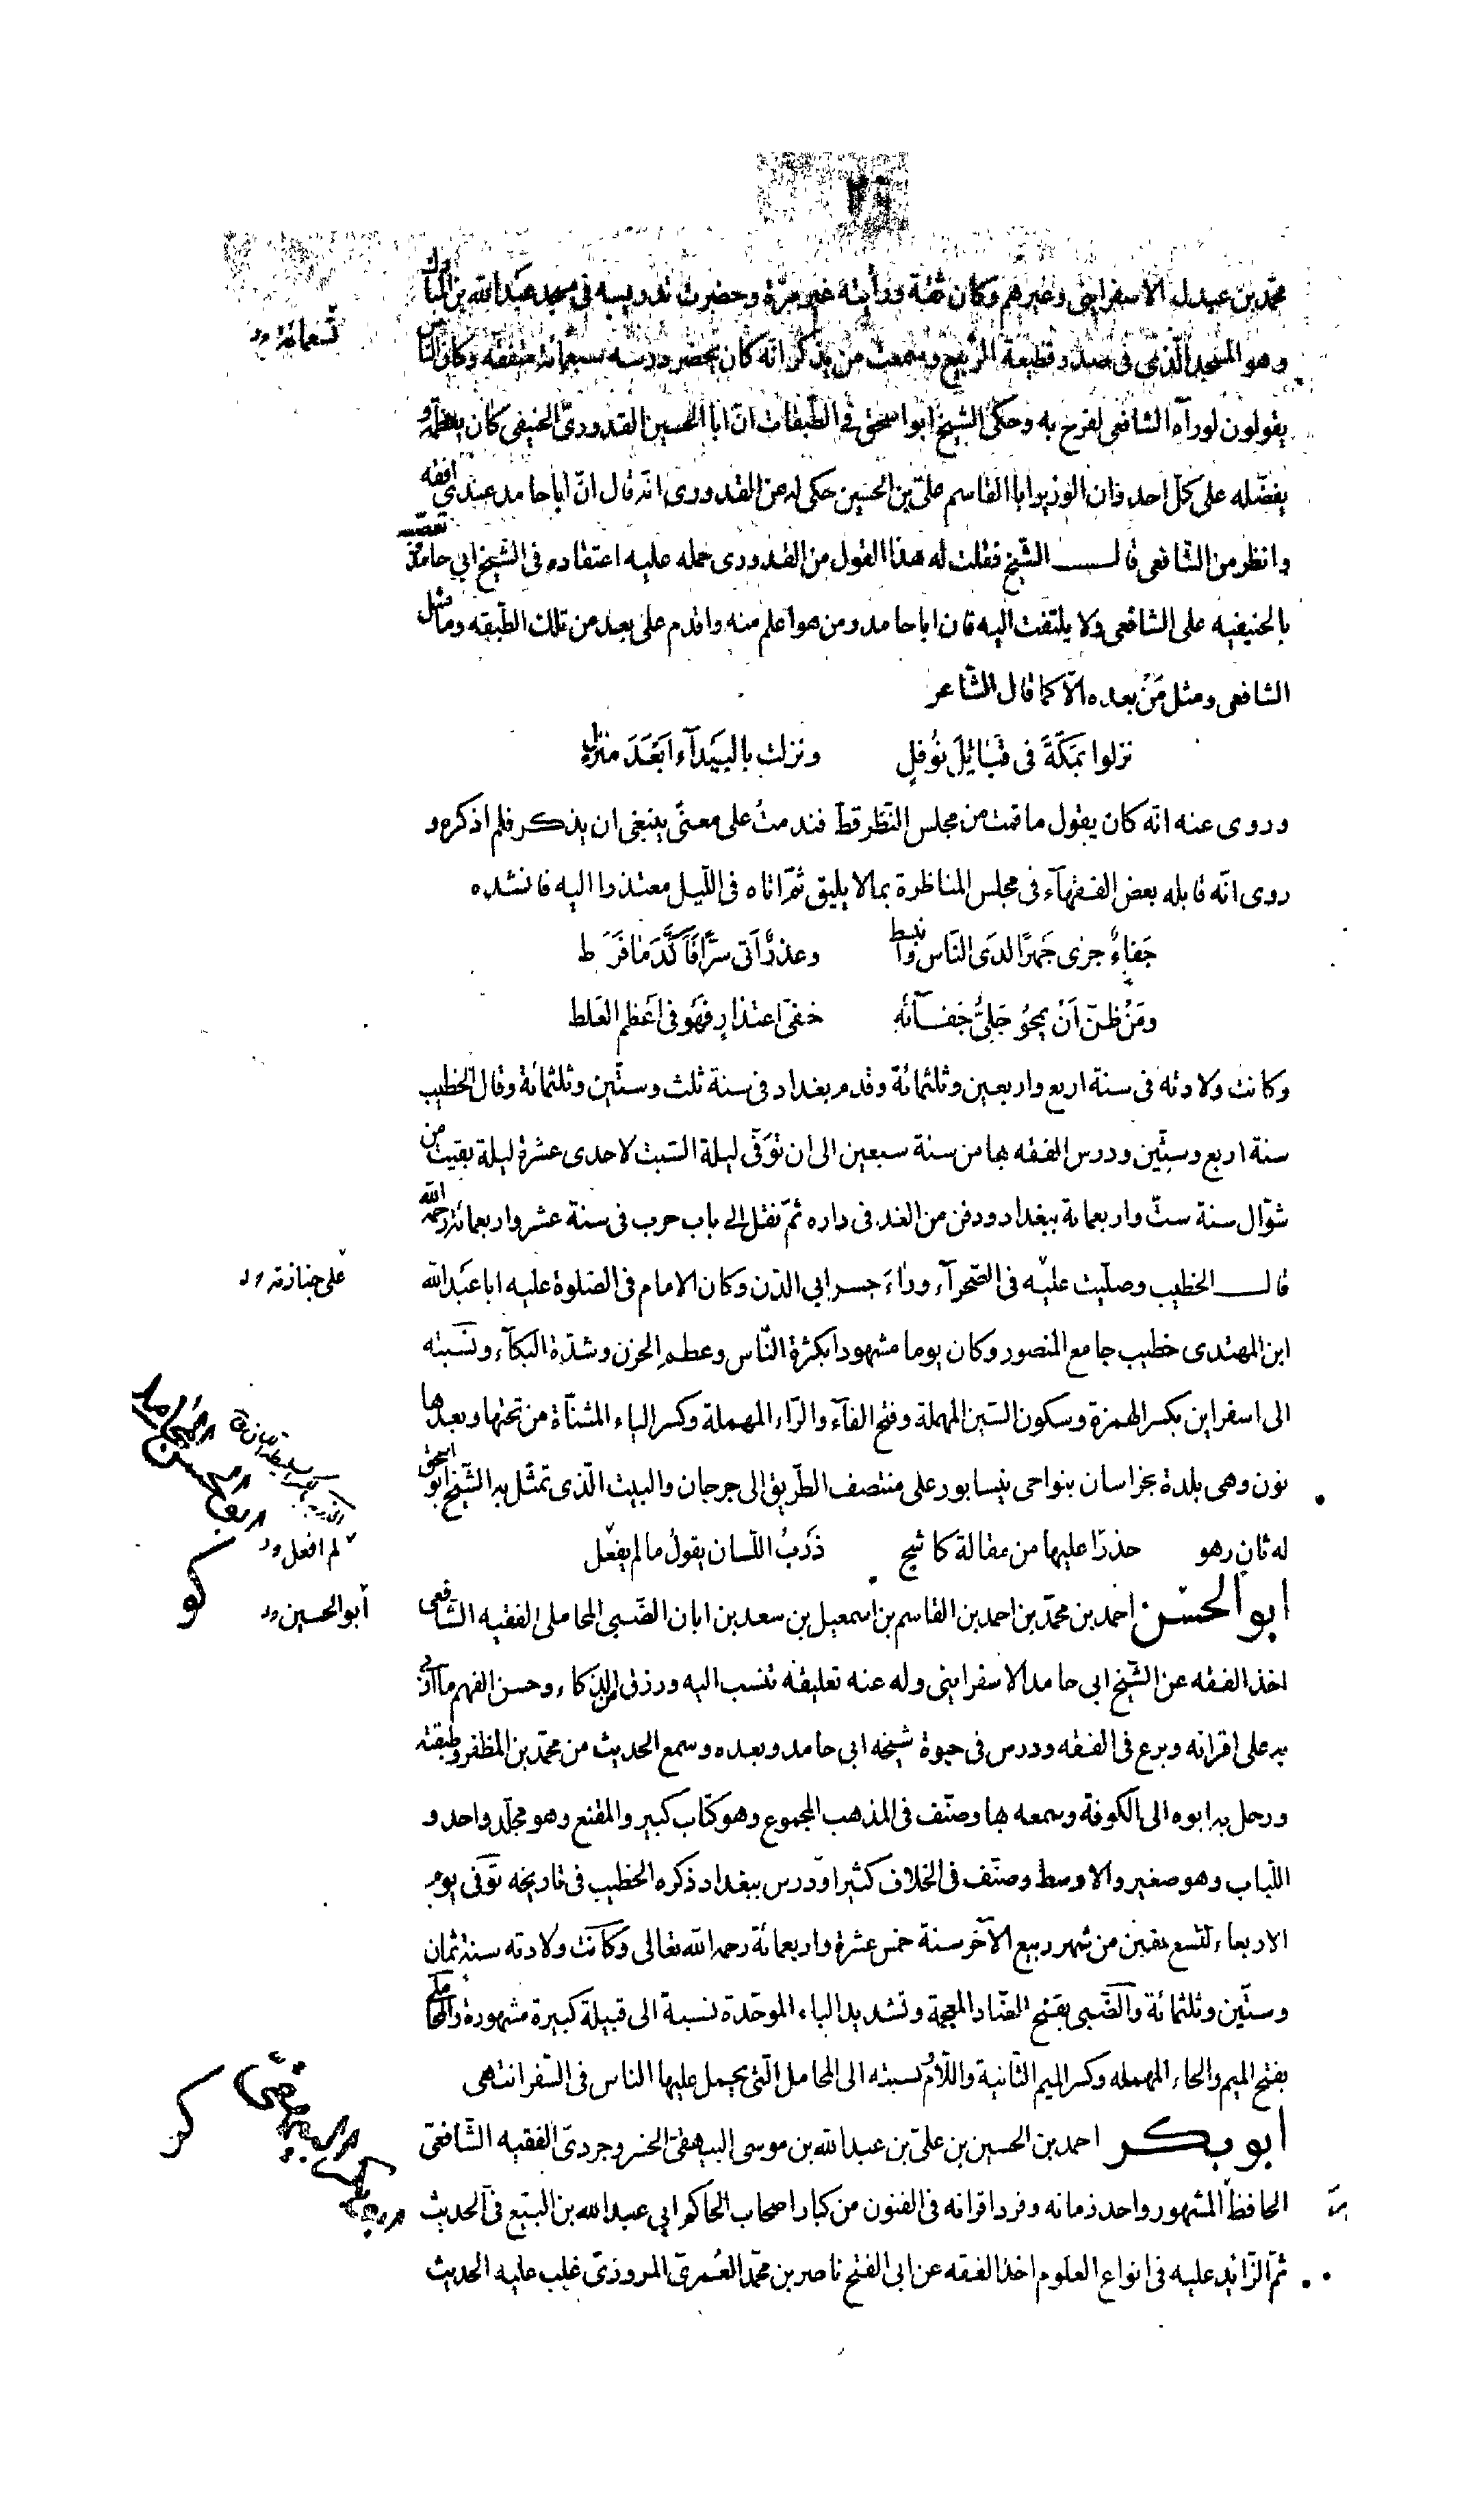 ٢٠
محمّد بن عبدك الاسفراينى وغيرهم وكان ثقة ورأيته غير مرّة وحضرت تدريسه فى مسجد عبد الله بن المبارك
وهو المسجد الّذى فى صدر قطيعة الرّبيع وسمعت من يذكر انّه كان يحضر درسه سبعمائة متفقه وكان النّاس
تسعمائة
يقولون لو رآه الشافعى لفرح به وحكى الشيخ ابو اسحق فى الطّبقات انّ ابا الحسين القدورىّ الحنيفى كان يعظّمه و
يفضّله على كلّ احد وان الوزير ابا القاسم علىّ بن الحسين حكى له عن القدورى انّه قال انّ ابا حامد عندى افقه
وانظر من الشّافعى قال الشّيخ فقلت له هذا القول من القدورى حمله عليه اعتقاده فى الشّيخ ابي حامد وتعصّبه
بالحنيفيه على الشافعى ولا يلتفت اليه فان ابا حامد ومن هو اعلم منه واقدم على بعد من تلك الطّبقه وما مثل
الشافعى ومثل مَنْ بعده الّا كما قال الشّاعر
نزلوا بمَكّةَ فى قَبَائِلَ نُوفلٍ ونزلت بالبَيدآءِ اَبْعَدَ منزلِ
وروى عنه انّه كان يقول ما قمت من مجلس النّظر قط فندمتُ على معنًى ينبغى ان يذكر فلم اذكره و
روى انّه قابله بعض الفقهآء فى مجلس المناظرة بما لا يليق ثمّ اتاه فى اللّيل معتذرا اليه فانشده
جَفاءٌ جرى جَهرًا لدَى النّاس وانبسط وعذرٌ اَتى سرًّا فَاَكَّدَ مَا فَرَط
ومَنْ ظنّ اَنْ يمحُو جَلِىُّ جَفآئه خفىّ اعتذارٍ فَهَو فى اَعظم الغَلط
وكانت ولادته فى سنة اربع واربعين وثلثمائة وقدم بغداد فى سنة ثلث وستّين وثلثمائة وقال الخطيب
سنة اربع وستّين ودرس الفقه بها من سنة سبعين الى ان تُوَفّى ليلة السّبت لاحدى عشرة ليلة بقيت من
شوّال سنة ستّ واربعماىة ببغداد ودفن من الغد فى داره ثمّ نقل الى باب حرب فى سنة عشر واربعمائة رحمه الله
قال الخطيب وصلّيت عليْه فى الصّحرآء ورآءَ جسر ابي الدّن وكان الامام فى الصّلوة عليه ابا عَبد الله
على جنازته
ابن المهتدى خطيب جامع المنصور وكان يوما مشهودا بكثرة النّاس وعظم الحزن وشدّة البكآء ونسبته
الى اسفراين بكسر الهمزة وسكون السّين المهملة وفتح الفآء والرّاء المهملة وكسر الياء المثنّاة من تحتها وبعدها
نون وهى بلدة بخراسان بنواحى نيسابور على منتصف الطّريق الى جرجان والبيت الّذى تمثّل به الشّيخ ابو اسحق
له ثانٍ وهو حذرًا عليها من مقالة كاشحٍ ذَرَبُ اللّسان يقولُ ما لم يفعل
لم افعل
ابو الحسن احمد بن محمّد بن احمد بن القاسم بن اسمعيل بن سعد بن ابان الضّبى المحاملى الفقيه الشّافعى
أبو الحسين
اخذ الفقه عن الشّيخ ابى حامد الاسفراينى وله عنه تعليقه تنسب اليه ورزق من الذكاء وحسن الفهم ما اربى
به على اقرانه وبرع فى الفقه ودرس فى حيوة شيخه ابى حامد وبعده وسمع الحديث من محمّد بن المظفر وطبقته
ورحل به ابوه الى الكوفة وسمعه بها وصنّف فى المذهب المجموع وهو كتاب كبير والمقنع وهو مجلّد واحد و
اللّباب وهو صغير والاوسط وصنّف فى الخلاف كثيرا ودرس ببغداد ذكره الخطيب فى تاريخه توفى يوم
الاربعاء لتسع بقين من شهر ربيع الآخر سنة خمس عشرة واربعمائة رحمه الله تعالى وكانت ولادته سنة ثمان
وستّين وثلثمائة والضّبى بفتح الضّاد المعجمة وتشديد الباء الموحّدة نسبة الى قبيلة كبيرة مشهورة والمحاملى
بفتح الميم والحاء المهمله وكسر الميم الثّانية واللّام نسبته الى المحامل الّتى يحمل عليها الناس فى السّفر انتهى
ابو بكر احمد بن الحسين بن علىّ بن عبد الله بن موسى البيهقىّ الخسروجردىّ الفقيه الشّافعىّ
الحافظ المشهور واحد زمانه وفرد اقرانه فى الفنون من كبار اصحاب الحاكم ابي عبد الله بن البيّع فى الحديث
ثمّ الزّائد عليه فى انواع العلوم اخذ الفقه عن ابى الفتح ناصر بن محمّد العُمرىّ المروذىّ غلب عليه الحديث